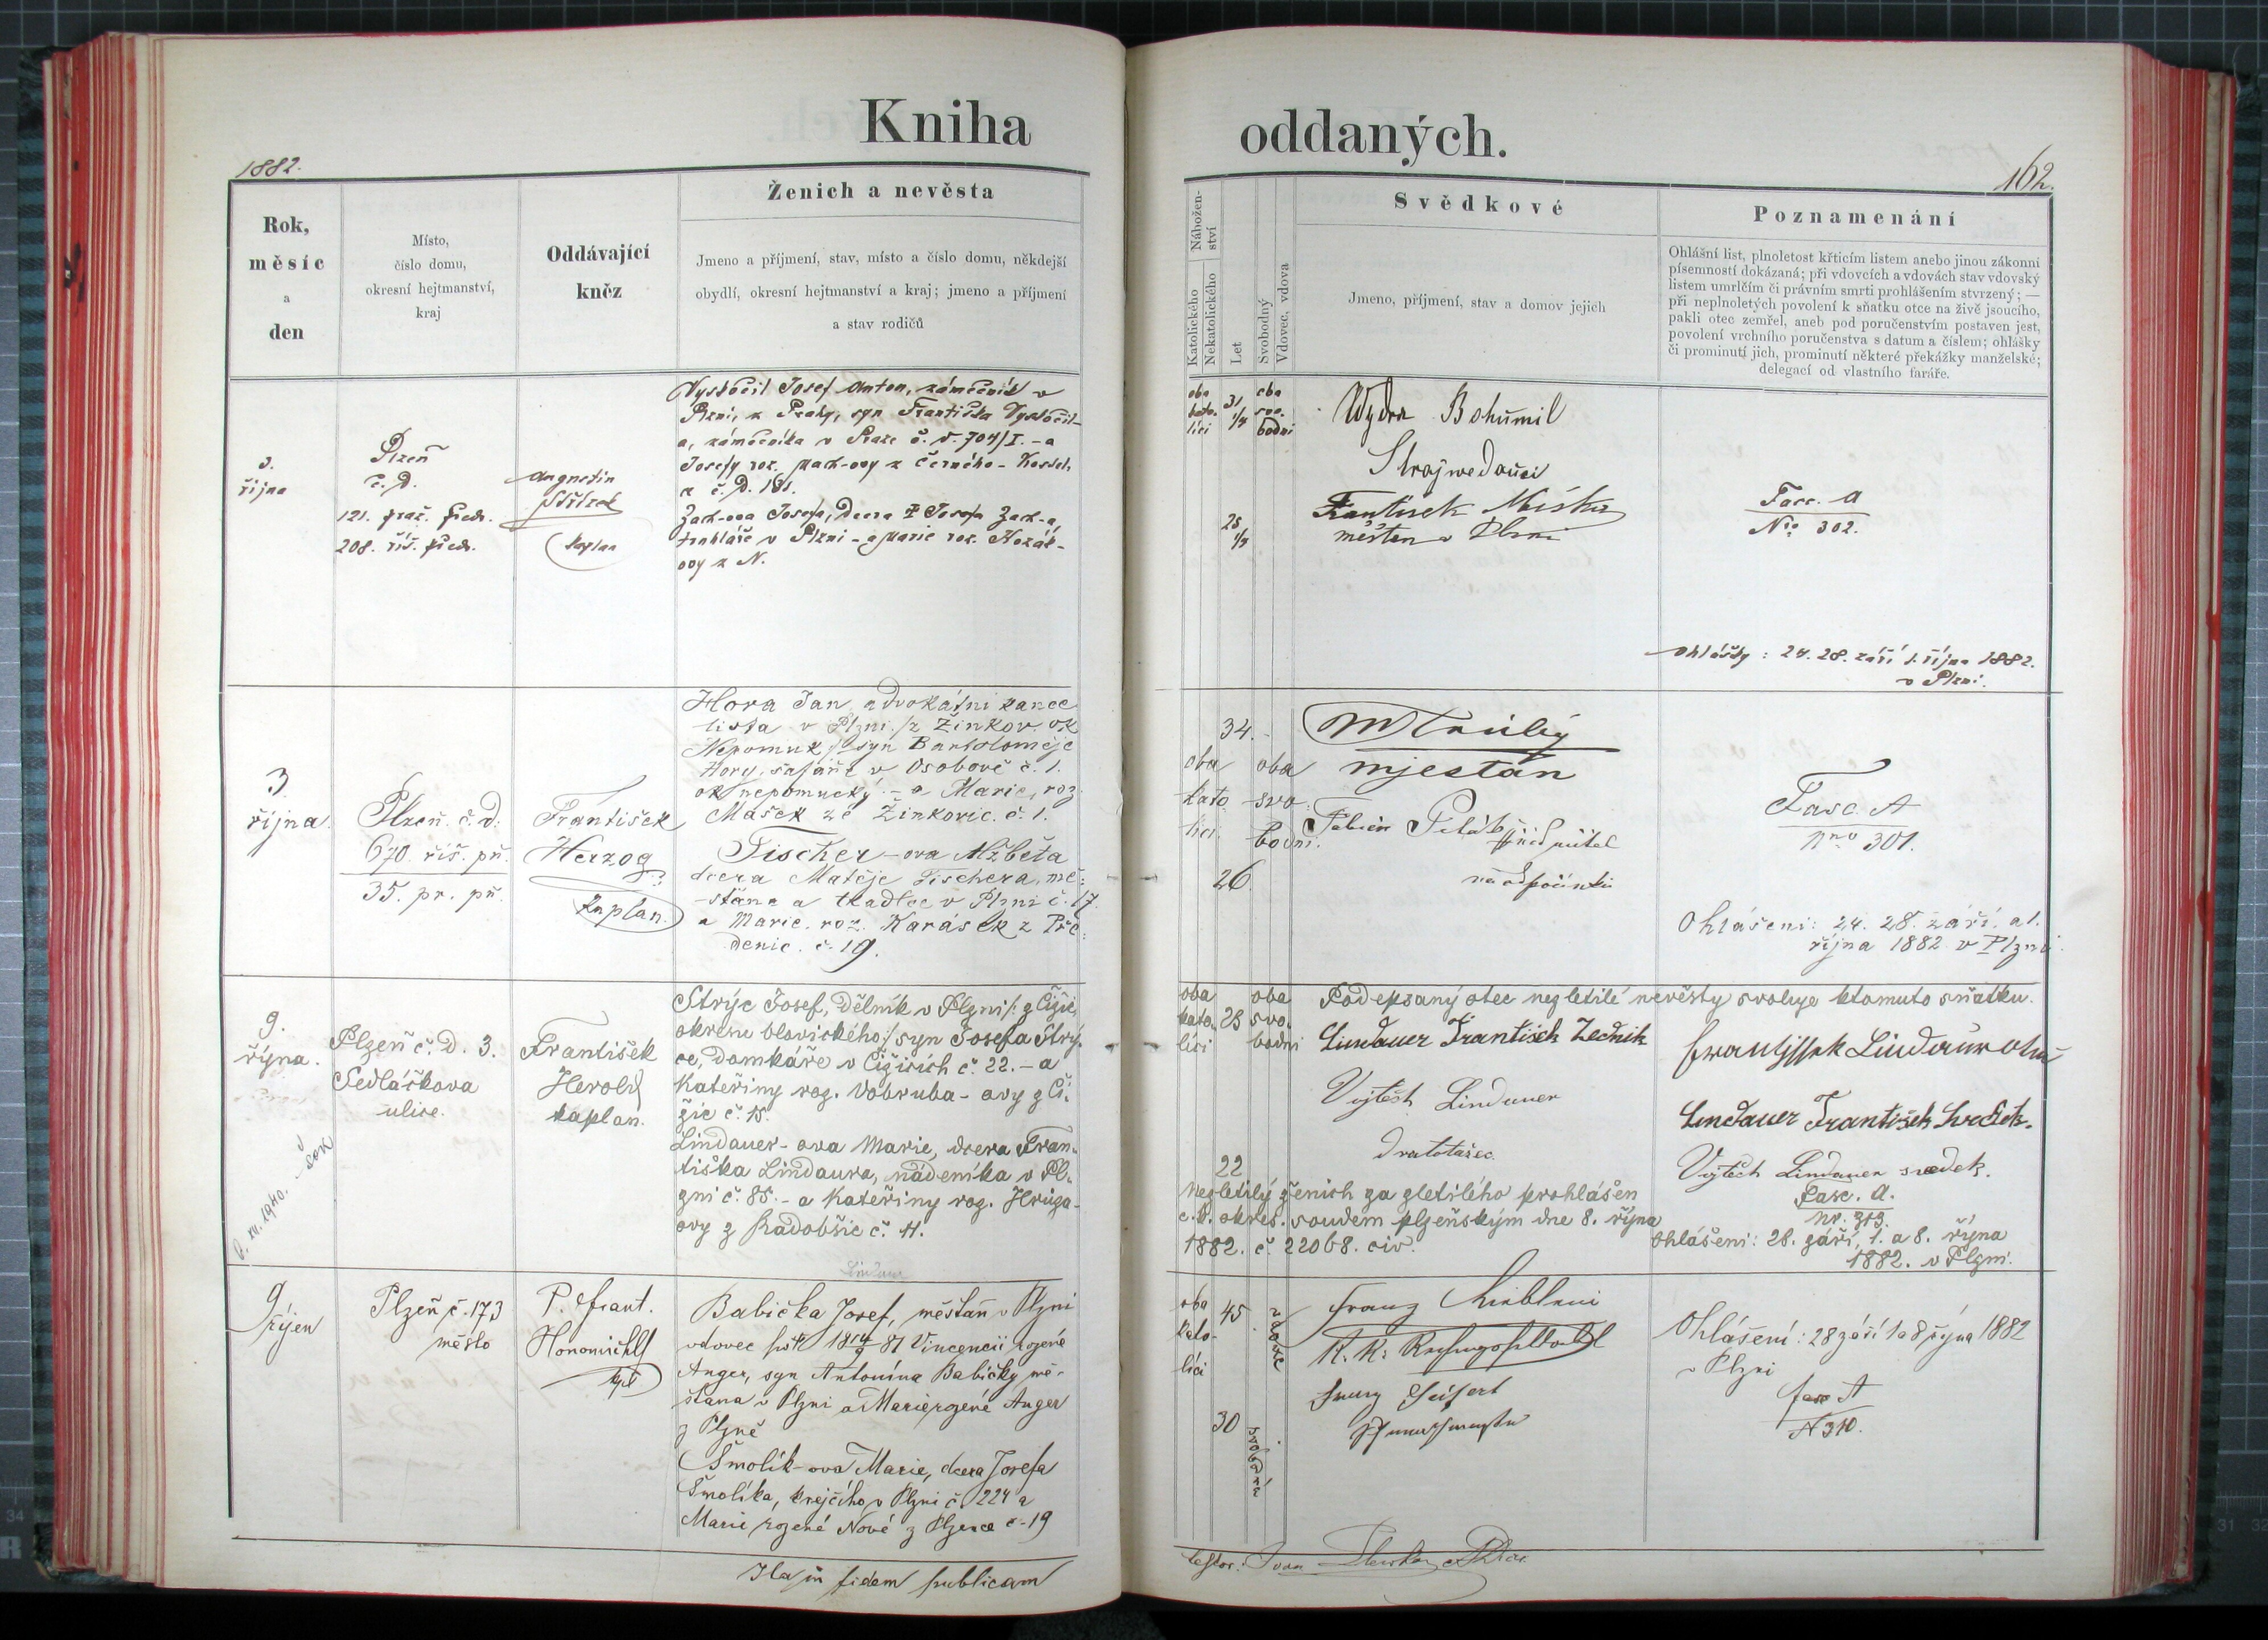 Kniha
oddaných.
1882.
162.
Rok,
měsíc
a
den
Místo,
číslo domu,
okresní hejtmanství,
kraj
Oddávající
kněz
Ženich a nevěsta
Jmeno a příjmení, stav, místo a číslo domu, někdejší
obydlí, okresní hejtmanství a kraj; jmeno a příjmení
a stav rodičů
Nábožen-
ství
Katolického
Nekatolického
Let
Svobodný
Vdovec, vdova
Svědkové
Jmeno, příjmení, stav a domov jejich
Poznamenání
Ohlášní list, plnoletost křticím listem anebo jinou zákonní
písemností dokázaná; při vdovcích a vdovách stav vdovský
listem umrlčím či právním smrti prohlášením stvrzený; —
při neplnoletých povolení k sňatku otce na živě jsoucího,
pakli otec zemřel, aneb pod poručenstvím postaven jest,
povolení vrchního poručenstva s datum a číslem; ohlášky
či prominutí jich, prominutí některé překážky manželské;
delegací od vlastního faráře.
3.
října
Plzeň
č. d.
121. praž. předr.
208. říš. předr.
kaplan
Vystočil Josef Anton, zámečník v
Plzni, z Prahy, syn Františka Vystočil-
a, zámečníka v Praze č. d. 704/I. - a
Josefy roz. z Černého - Kostel.
a č. d. 181.
Zach-ova Josefa, dcera Josefa Zach-a,
truhláře v Plzni - a Marie roz. Kozák-
ovy z N.
oba
kato.
líci
31
1/4
oba
svo.
bodni
25
1/3
Wydra Bohumil
Strojwedoucí
František
měšťan v Plzni
Fasc. A
Nro 302.
Ohlášky: 24. 28. září 1. října 1882.
v Plzni.
3
října.
Plzeň. č. d:
670. říš. př.
35. pr. př.
František
Herzog
kaplan.
Hora Jan advokátní kance
lista v Plzni /z Žinkov. ok
Nepomuk/ syn Bartoloměje
Hory, šafáře v Osobově č. 1.
ok nepomucký - a Marie, roz
Mašek ze Žinkovic. č. 1.
Fischer - ova Alžběta
dcera Matěje Fischera, mě:
-šťana a tkadlce v Plzni č. 17.
a Marie. roz. Karásek z Pře:
denic. č. 19.
34.
oba
kato
líci.
oba
svo:
bodni.
26.
mjestan
na odpočinku
Fasc. A
Nro 301.
Ohlášení: 24. 28. září. a 1.
října 1882 v Plzni.
9.
října.
Plzeň č. d. 3.
Sedláčkova
ulice.
František
Herold
kaplan.
Strýc Josef, dělník v Plzni /: z Čižic,
okresu blovického:/ syn Josefa Strý-
ce, domkáře v Čižicích č. 22. - a
Kateřiny roz. Vobruba - ovy z Či-
žic č. 15.
Lindauer - ova Marie, dcera Fran-
tiška Lindaura, nádeníka v Pl-
zni č. 85. - a Kateřiny roz. Hruza-
ovy z Radobšic č. 11.
oba
kato.
líci
23
oba
svo.
bodni
22
Podepsaný otec nezletilé nevěsty svoluje ktomuto sňatku.
Lindauer František Zedník
Vojtěch Lindauer
dratotažec
Frantjssek Lindaur otec
Lindauer František svědek.
Vojtěch Lindauer svedek.
Fasc. A.
nr. 313.
Nezletilý ženich za zletilého prohlášen
c. k. okres. soudem plzeňským dne 8. října
1882. č. 22068. civ.
Ohlášení: 28. září, 1. a 8. října
1882. v Plzni.
9
říjen
Plzeň č. 173
město
P. Frant.
Honomichl
Babička Josef, měšťan v Plzni
vdovec po Vincencii rozené
Anger, syn Antonína Babičky mě-
šťana v Plzni a Marie rozené Anger
z Plzně
Smolík - ova Marie, dcera Josefa
Smolíka, krejčího v Plzni č. 224 a
Marie rozené Nové z Plzence č. 19
oba
kato-
líci
45
vdovec
30
svobodná
Franz
K. K.
Franz Seifert
Ohlášení: 28 září 1 a 8 října 1882
v Plzni
fasc A
N 310.
Ita in fidem publicam